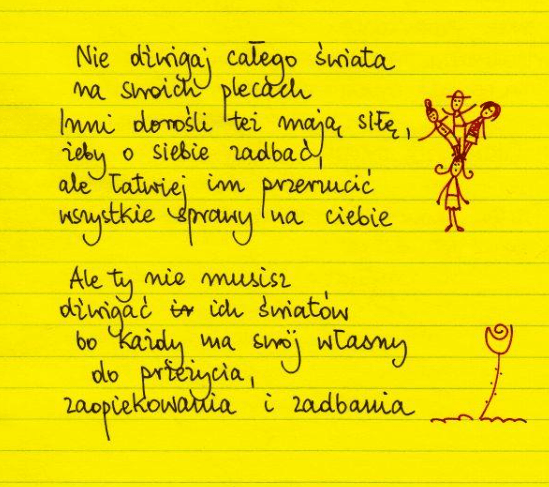 Nie dźwigaj całego świata
na swoich plecach
Inni dorośli też mają siłę,
żeby o siebie zadbać,
ale łatwiej im przerzucić
wszystkie sprawy na ciebie
Ale ty nie musisz
dźwigać ich światów
bo każdy ma swój własny
do przeżycia,
zaopiekowania i zadbania